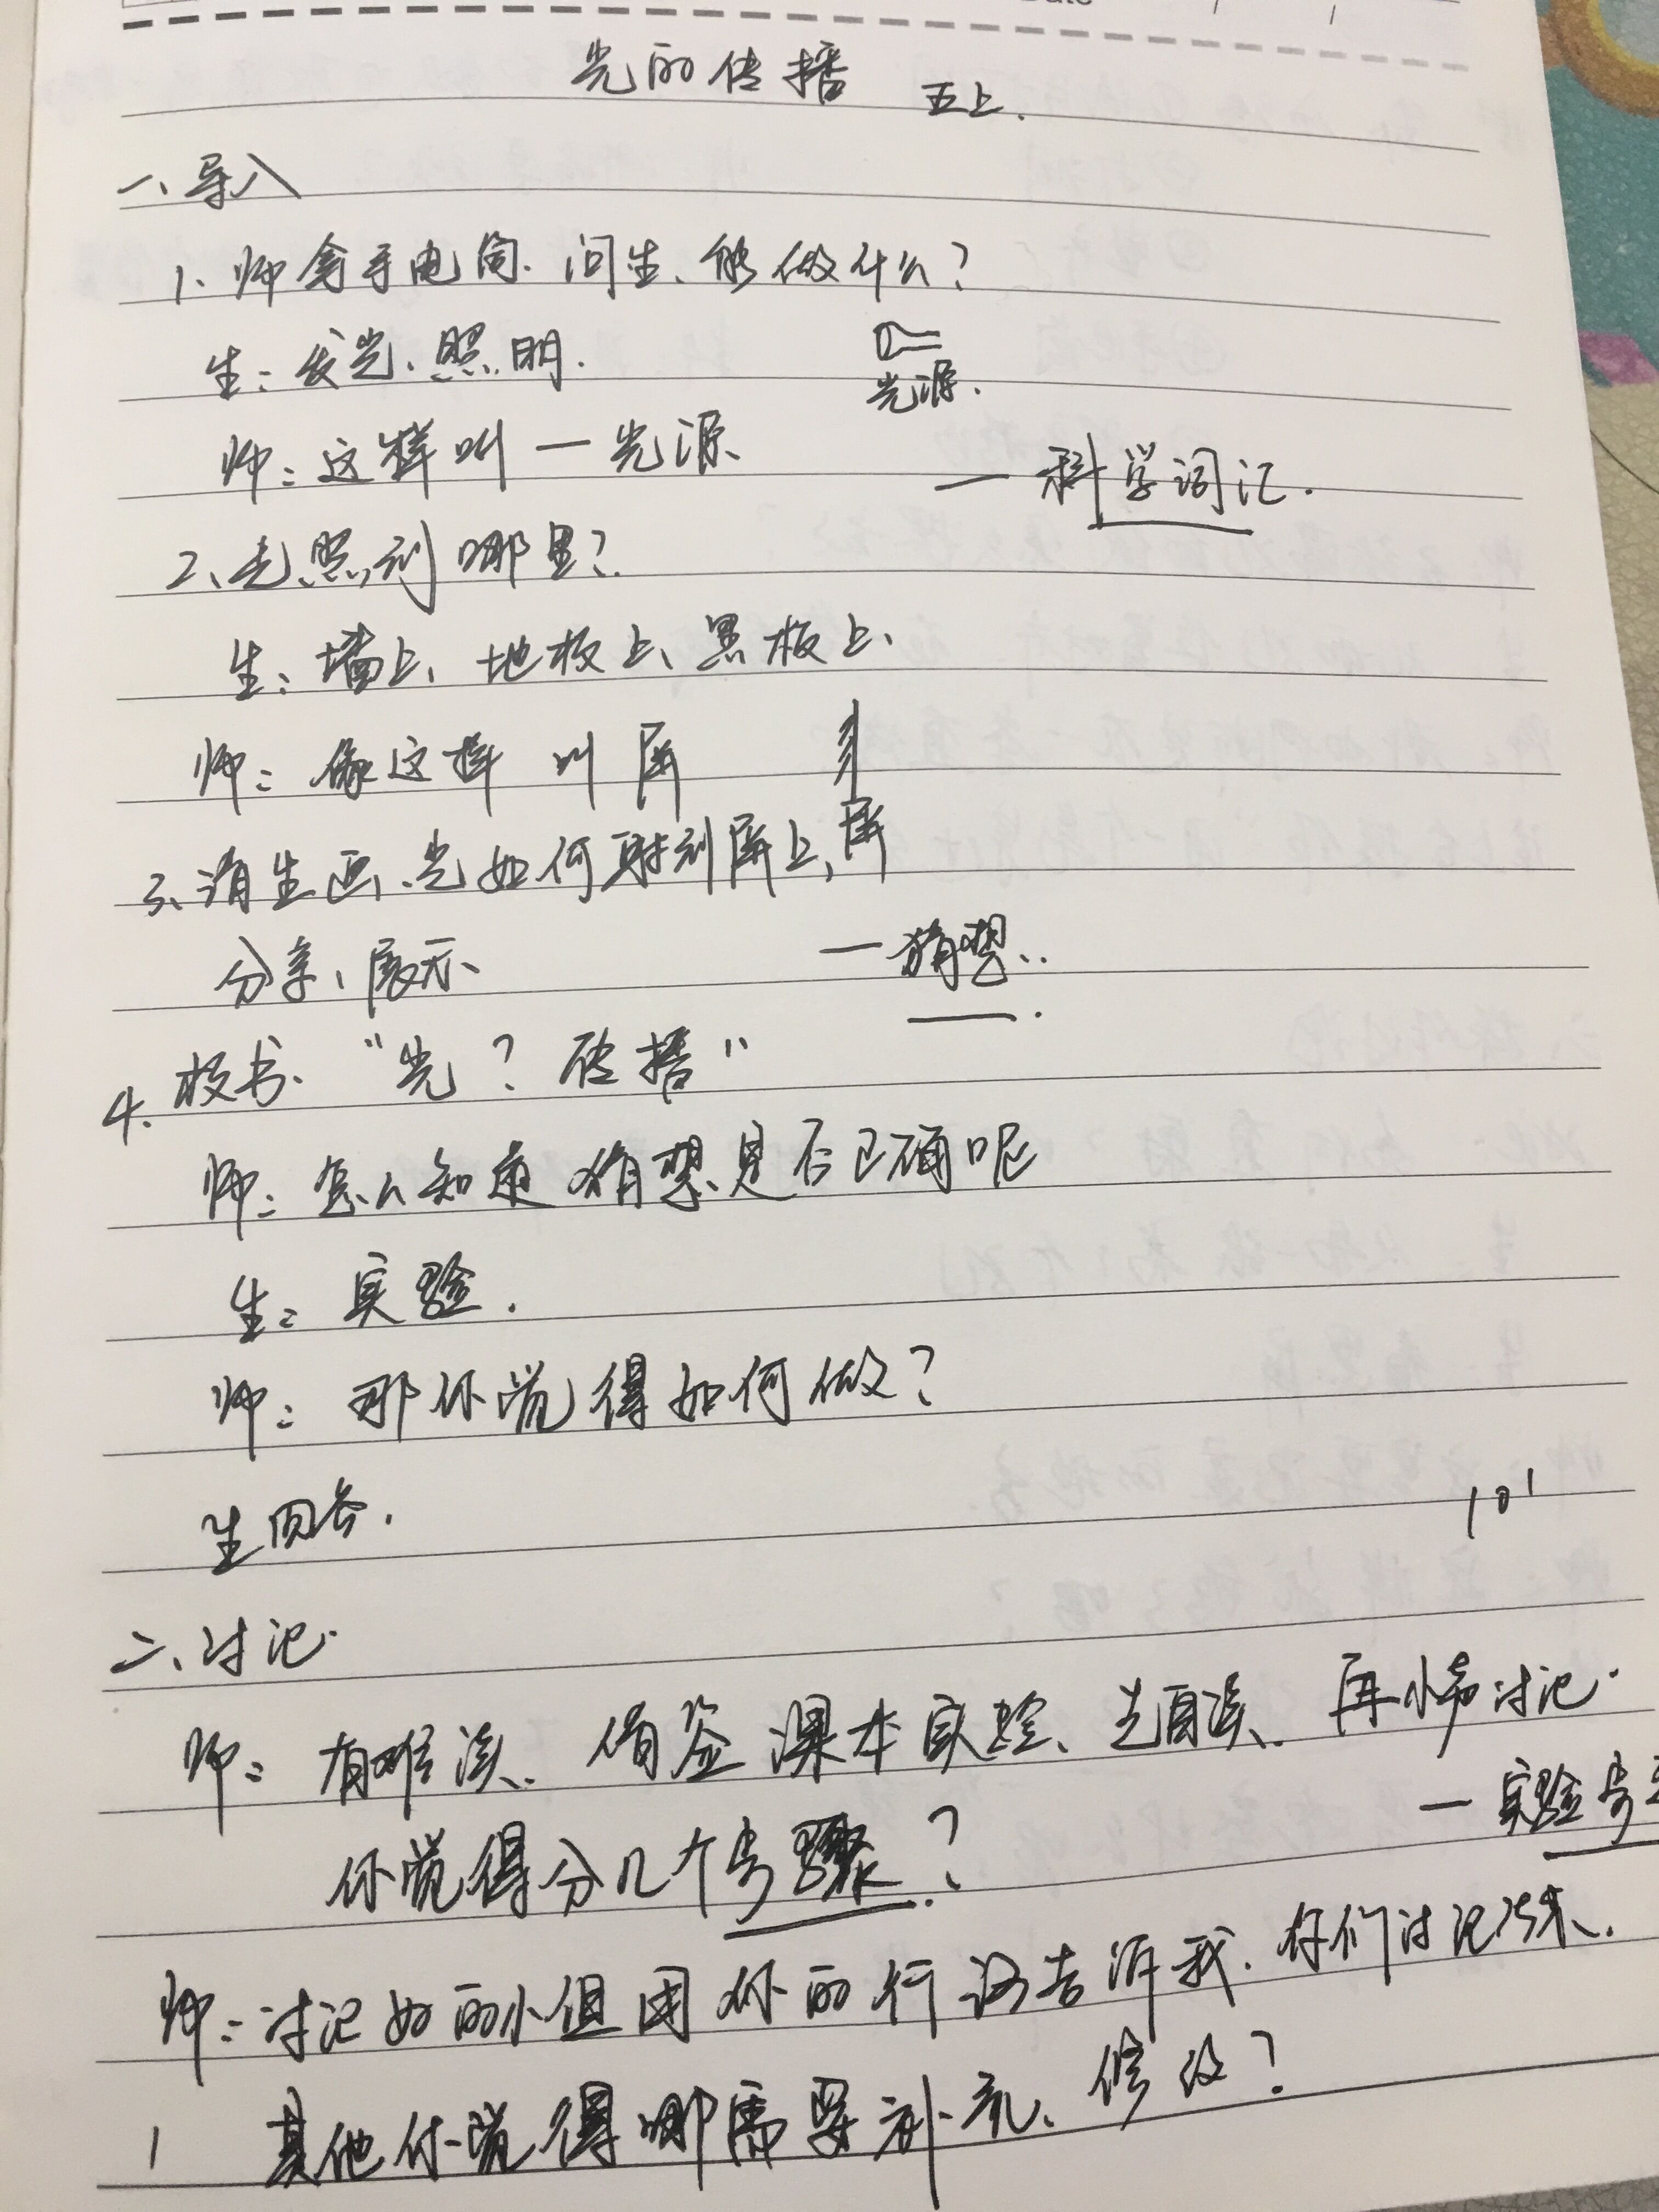 Date / /
光的传播 五上.
一、导入
1、师拿手电筒.问生、能做什么?
生:发光、照明.
光源.
师:这样叫—光源、
—科学词汇.
2、光照到哪里?
生:墙上、地板上、黑板上、
师:像这样叫屏
屏
3、请生画、光如何射到屏上,
分享、展示、
—猜想..
4.板书、“光?传播”
师:怎么知道猜想是否正确呢
生:实验.
师:那你觉得如何做?
生回答.
二、讨论.
师:有难度、课本实验、先自读、再小声讨论.
—实验步
你觉得分几个步骤?
师:讨论好的小组用你的行动告诉我.你们讨论结束、.
其他你觉得哪需要补充、修改?